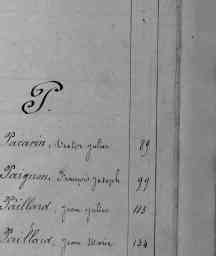 P.
Pacarin, Nestor Julien 89
Paignon, François Joseph 99
Paillard, Jean Julien 113
Paillard, Jean Marie 134